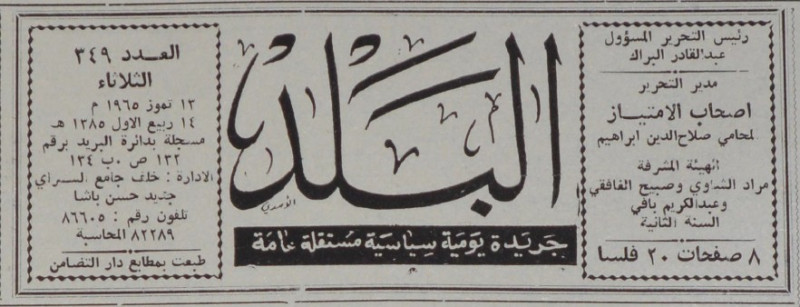 رئيس التحرير المسؤول
عبدالقادر البراك
مدير التحرير
اصحاب الامتياز
لمحامي صلاح الدين ابراهيم
الهيئة المشرفة
مراد الشاوي وصبيح الغافقي
وعبدالكريم بافي
السنة الثانية
٨ صفحات ٢٠ فلسا
البلد
جريدة يومية سياسية مستقلة عامة
العدد ٣٤٩
الثلاثاء
١٣ تموز ١٩٦٥ م
١٤ ربيع الاول ١٣٨٥ هـ
مسجلة بدائرة البريد برقم
١٣٢ ص ٠ب ١٣٤
الادارة : خلف جامع السراي
جديد حسن باشا
تلفون رقم : ٨٦٦٠٥
٨٢٢٨٩ المحاسبة
طبعت بمطابع دار التضامن